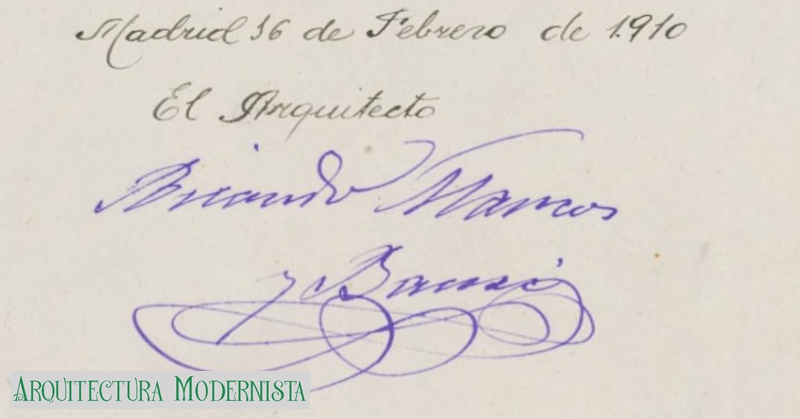 Madrid 16 de Febrero de 1.910
El Arquitecto
Ricardo Marcos
y Bausá
ARQUITECTURA MODERNISTA